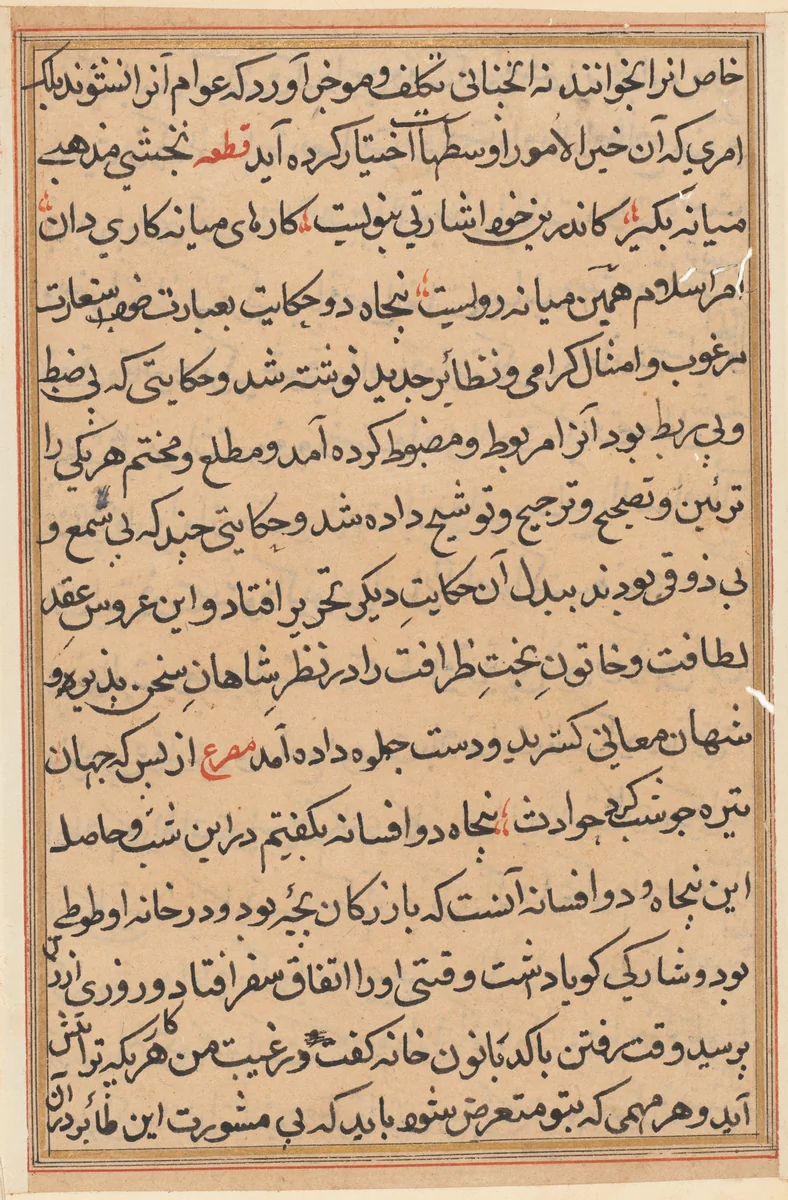 خاص انرا نخوانند نه انچنانی تکلف و موجز آورد که عوام آنرا نشنوند بلکه
امری که آن خیر الامور اوسطها است اختیار کرده آید قطعه نخشبی مذهبی
میانه بگیر کاندرین خود اشارتی نبویست کارهای میانه کاری دان
امر اسلام همین میانه رویست پنجاه دو حکایت بعبارت خوب استعارت
مرغوب و امثال کرامی و نظائر جدید نوشته شد و حکایتی که بی ضبط
و بی ربط بود آنرا مربوط و مضبوط کرده آمد و مطلع و مختم هر یکی را
تزئین و تصحیح و ترجیح و توشیح داده شد و حکایتی چند که بی سمع و
بی ذوق بودند ببدل آن حکایتِ دیکر تحریر افتاد و این عروس عقدِ
لطافت و خاتونِ تختِ ظرافت را در نظرِ شاهانِ سخن پذیر و
شهان معانی کستر ید و دست جلوه داده آمد مصرع از بس که جهان
تیره جو شب کرد حوادث پنجاه دو افسانه بکفتیم در این شب و حاصل
این پنجاه و دو افسانه آنست که بازرکان بچۀ بود و در خانه او طوطی
بود و شارکی کویا داشت وقتی اورا اتفاق سفر افتاد و روزی از زن
پرسید وقت رفتن با کدبانون خانه کفت در غیبت من هر کار یکه ترا پیش
آید و هر مهمی که بتو متعرض شود باید که بی مشورت این طائر در آن